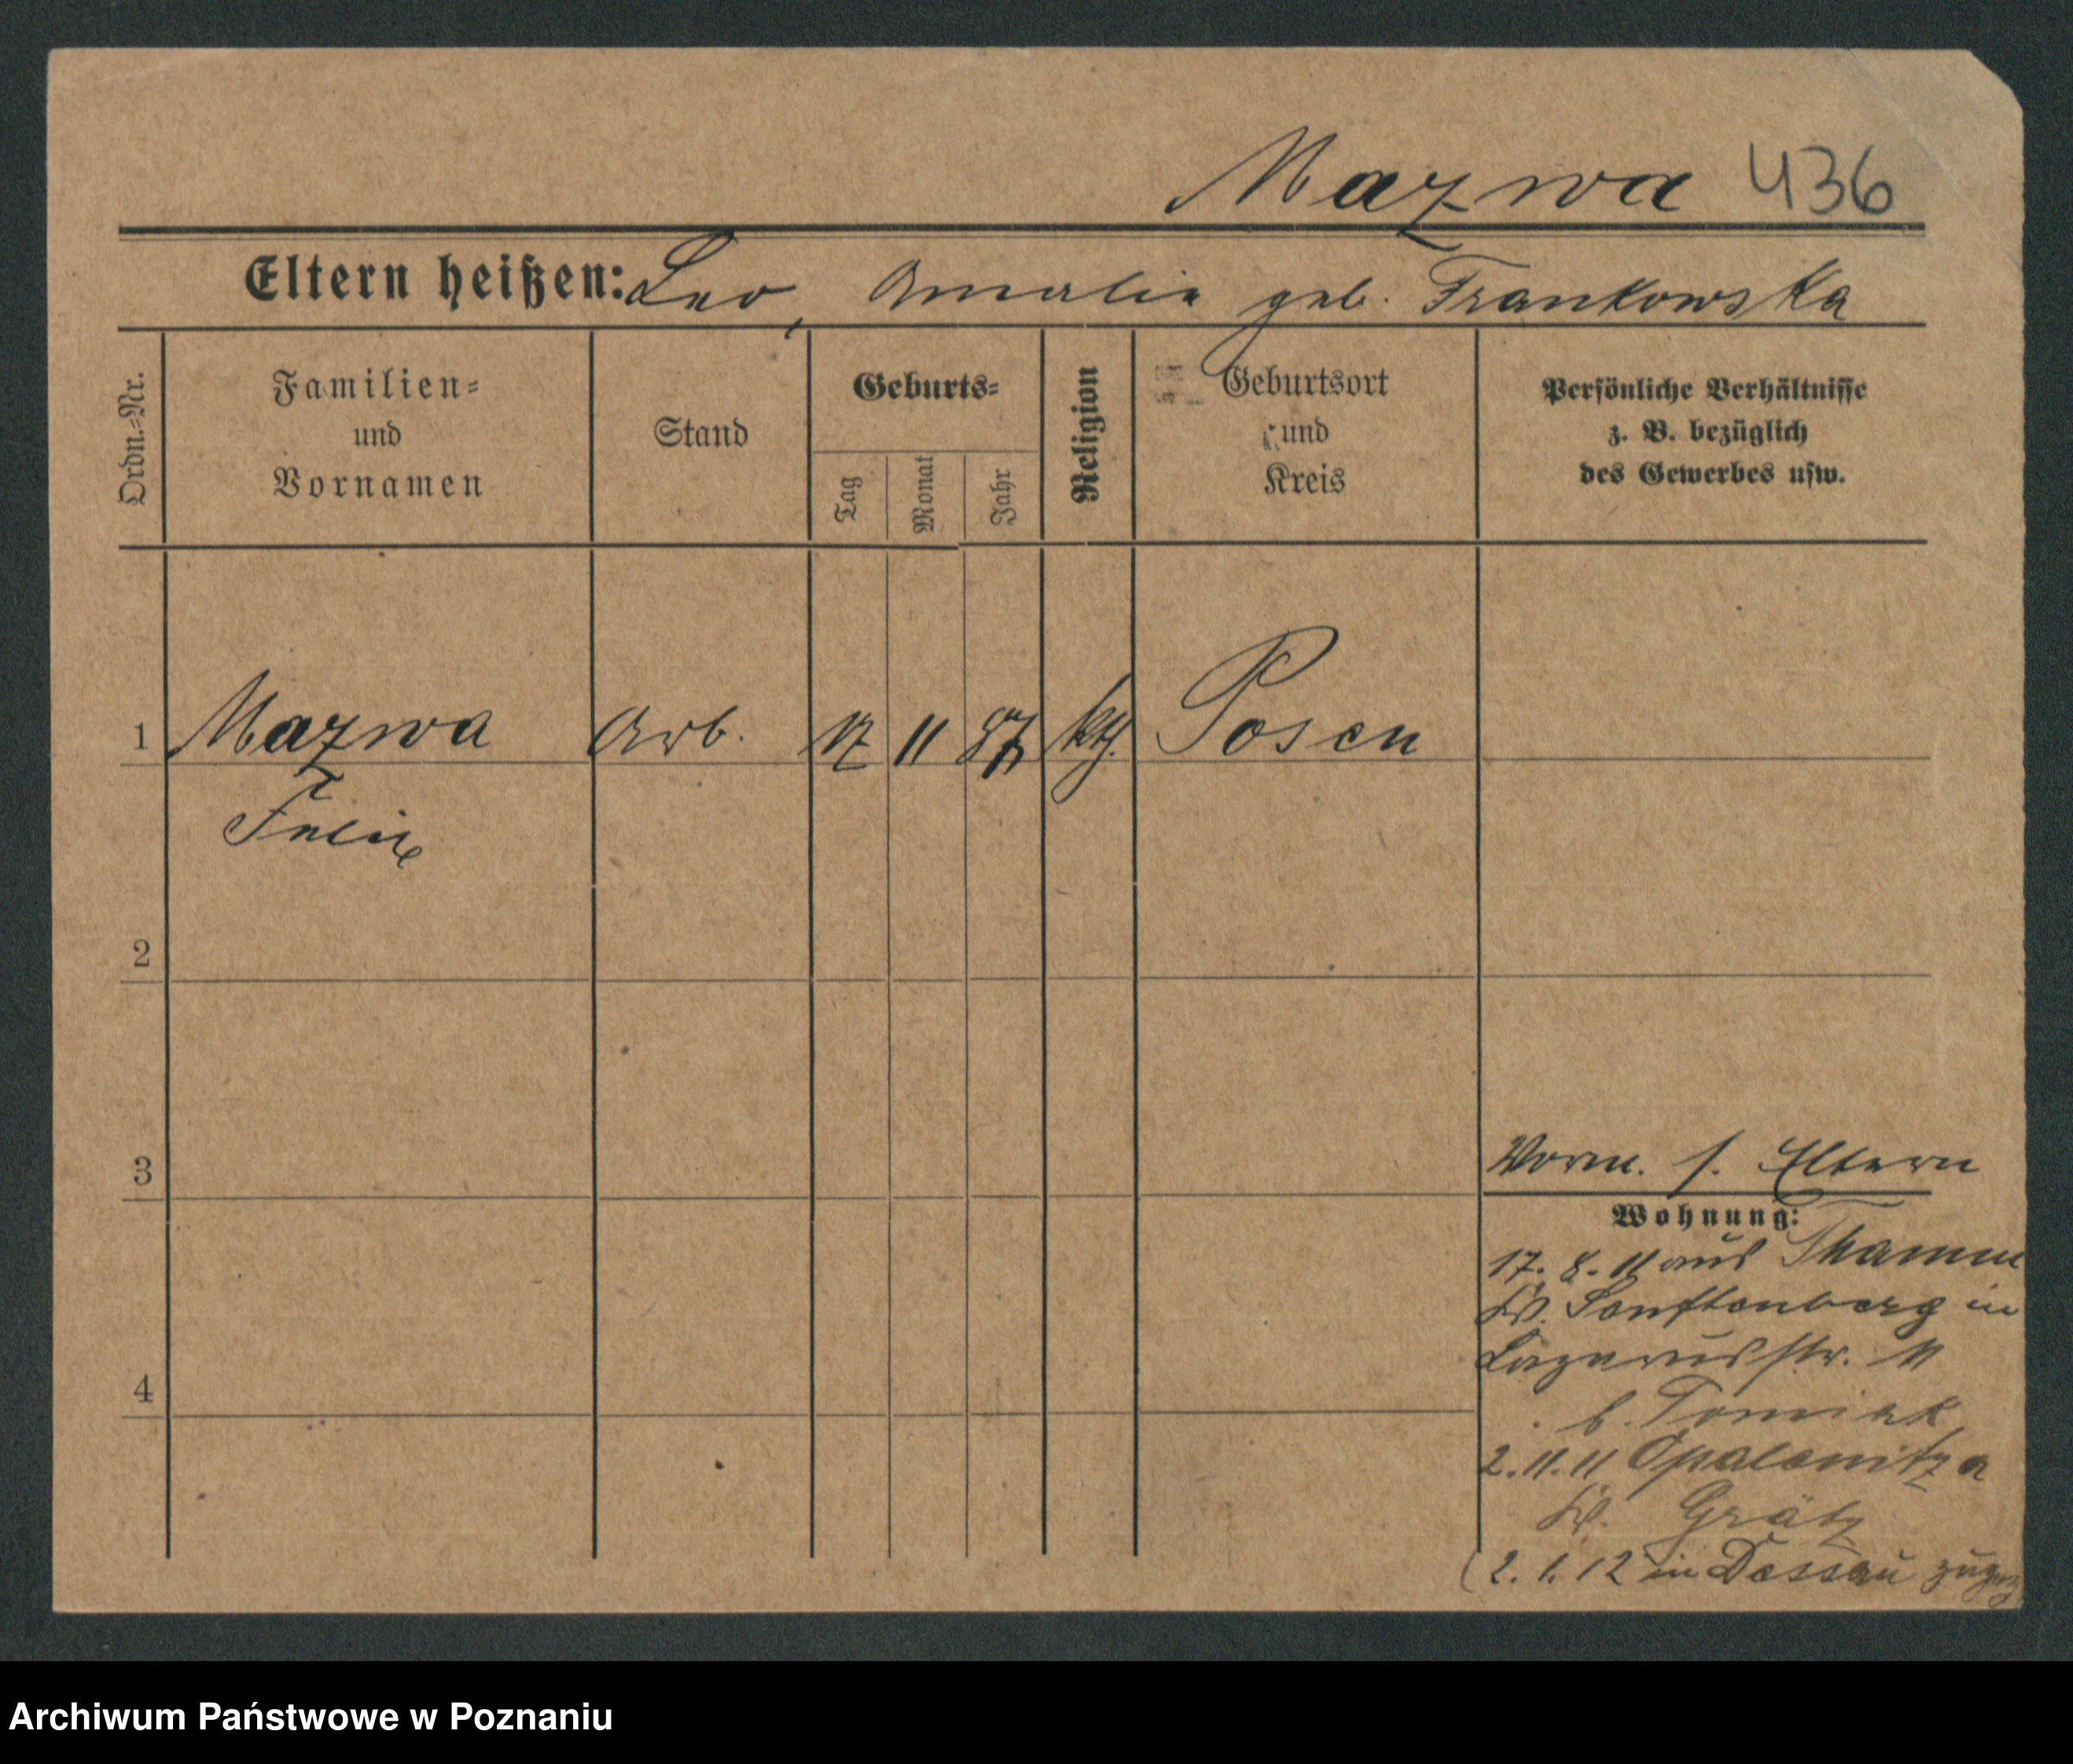 Mazwa 436
Eltern heißen: Leo, Amalie geb. Frankowska
Ordn.=Nr.
Familien=
und
Vornamen
Stand
Geburts=
Tag
Monat
Jahr
Religion
Geburtsort
und
Kreis
Persönliche Verhältnisse
z. B. bezüglich
des Gewerbes usw.
1 Mazwa Arb. 17 11 87 kth. Posen
2
3
4
Vorm. s. Eltern
Wohnung:
17. 8. 11 aus Thamm
Kr. Senftenberg in
Lazarusstr. 11
b. Tomiak
2. 11. 11 Opalenitza
Kr. Grätz
(2. 1. 12 in Dessau zugez
Archiwum Państwowe w Poznaniu